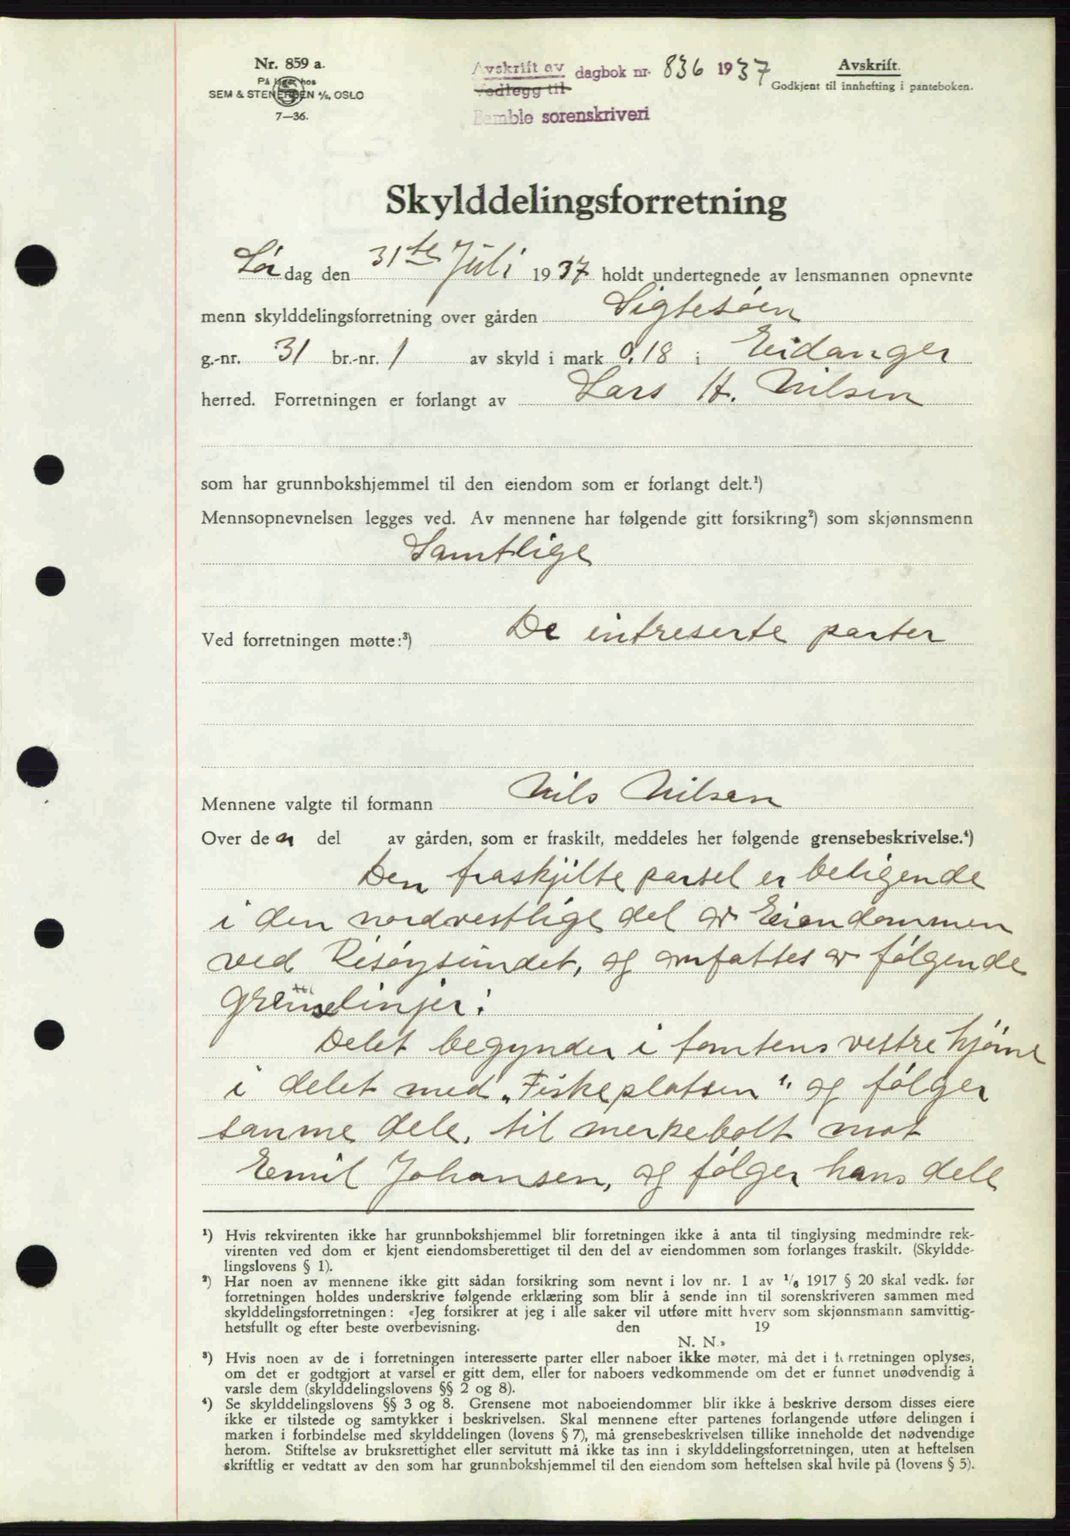 Nr. 859 a.
På lager hos
SEM & STENERSEN A/S, OSLO
7—36.
Avskrift av
vedlegg til
dagbok nr. 836 1937
Bamble sorenskriveri
Avskrift.
Godkjent til innhefting i panteboken.
Skylddelingsforretning
Lør dag den 31te Juli 1937 holdt undertegnede av lensmannen opnevnte
menn skylddelingsforretning over gården Sigtesøen
g.-nr. 31 br.-nr. 1 av skyld i mark 0,18 i Eidanger
herred. Forretningen er forlangt av Lars H. Nilsen
som har grunnbokshjemmel til den eiendom som er forlangt delt.¹)
Mennsopnevnelsen legges ved. Av mennene har følgende gitt forsikring²) som skjønnsmenn
Samtlige
Ved forretningen møtte:³) De intreserte parter
Mennene valgte til formann Nils Nilsen
Over den del av gården, som er fraskilt, meddeles her følgende grensebeskrivelse.⁴)
Den fraskjilte parsel er beligende
i den nordvestlige del av Eiendommen
ved Risøysundet, og omfattes av følgende
grenselinjer:
Delet begynder i tomtens vestre hjørne
i delet med „Fiskeplatsen“, og følger
samme dele, til merkebolt mot
Emil Johansen, og følger hans dele
¹) Hvis rekvirenten ikke har grunnbokshjemmel blir forretningen ikke å anta til tinglysing medmindre rek-
virenten ved dom er kjent eiendomsberettiget til den del av eiendommen som forlanges fraskilt. (Skyldde-
lingslovens § 1).
²) Har noen av mennene ikke gitt sådan forsikring som nevnt i lov nr. 1 av 1/6 1917 § 20 skal vedk. før
forretningen holdes underskrive følgende erklæring som blir å sende inn til sorenskriveren sammen med
skylddelingsforretningen: «Jeg forsikrer at jeg i alle saker vil utføre mitt hverv som skjønnsmann samvittig-
hetsfullt og efter beste overbevisning. den 19
N. N.»
³) Hvis noen av de i forretningen interesserte parter eller naboer ikke møter, må det i forretningen oplyses,
om det er godtgjort at varsel er gitt dem, eller for naboers vedkommende om det er funnet unødvendig å
varsle dem (skylddelingslovens §§ 2 og 8).
⁴) Se skylddelingslovens §§ 3 og 8. Grensene mot naboeiendommer blir ikke å beskrive dersom disses eiere
ikke er tilstede og samtykker i beskrivelsen. Skal mennene efter partenes forlangende utføre delingen i
marken i forbindelse med skylddelingen (lovens § 7), må grensebeskrivelsen tillike inneholde det nødvendige
herom. Stiftelse av bruksrettighet eller servitutt må ikke tas inn i skylddelingsforretningen, uten at heftelsen
skriftlig er vedtatt av den som har grunnbokshjemmel til den eiendom som heftelsen skal hvile på (lovens § 5).